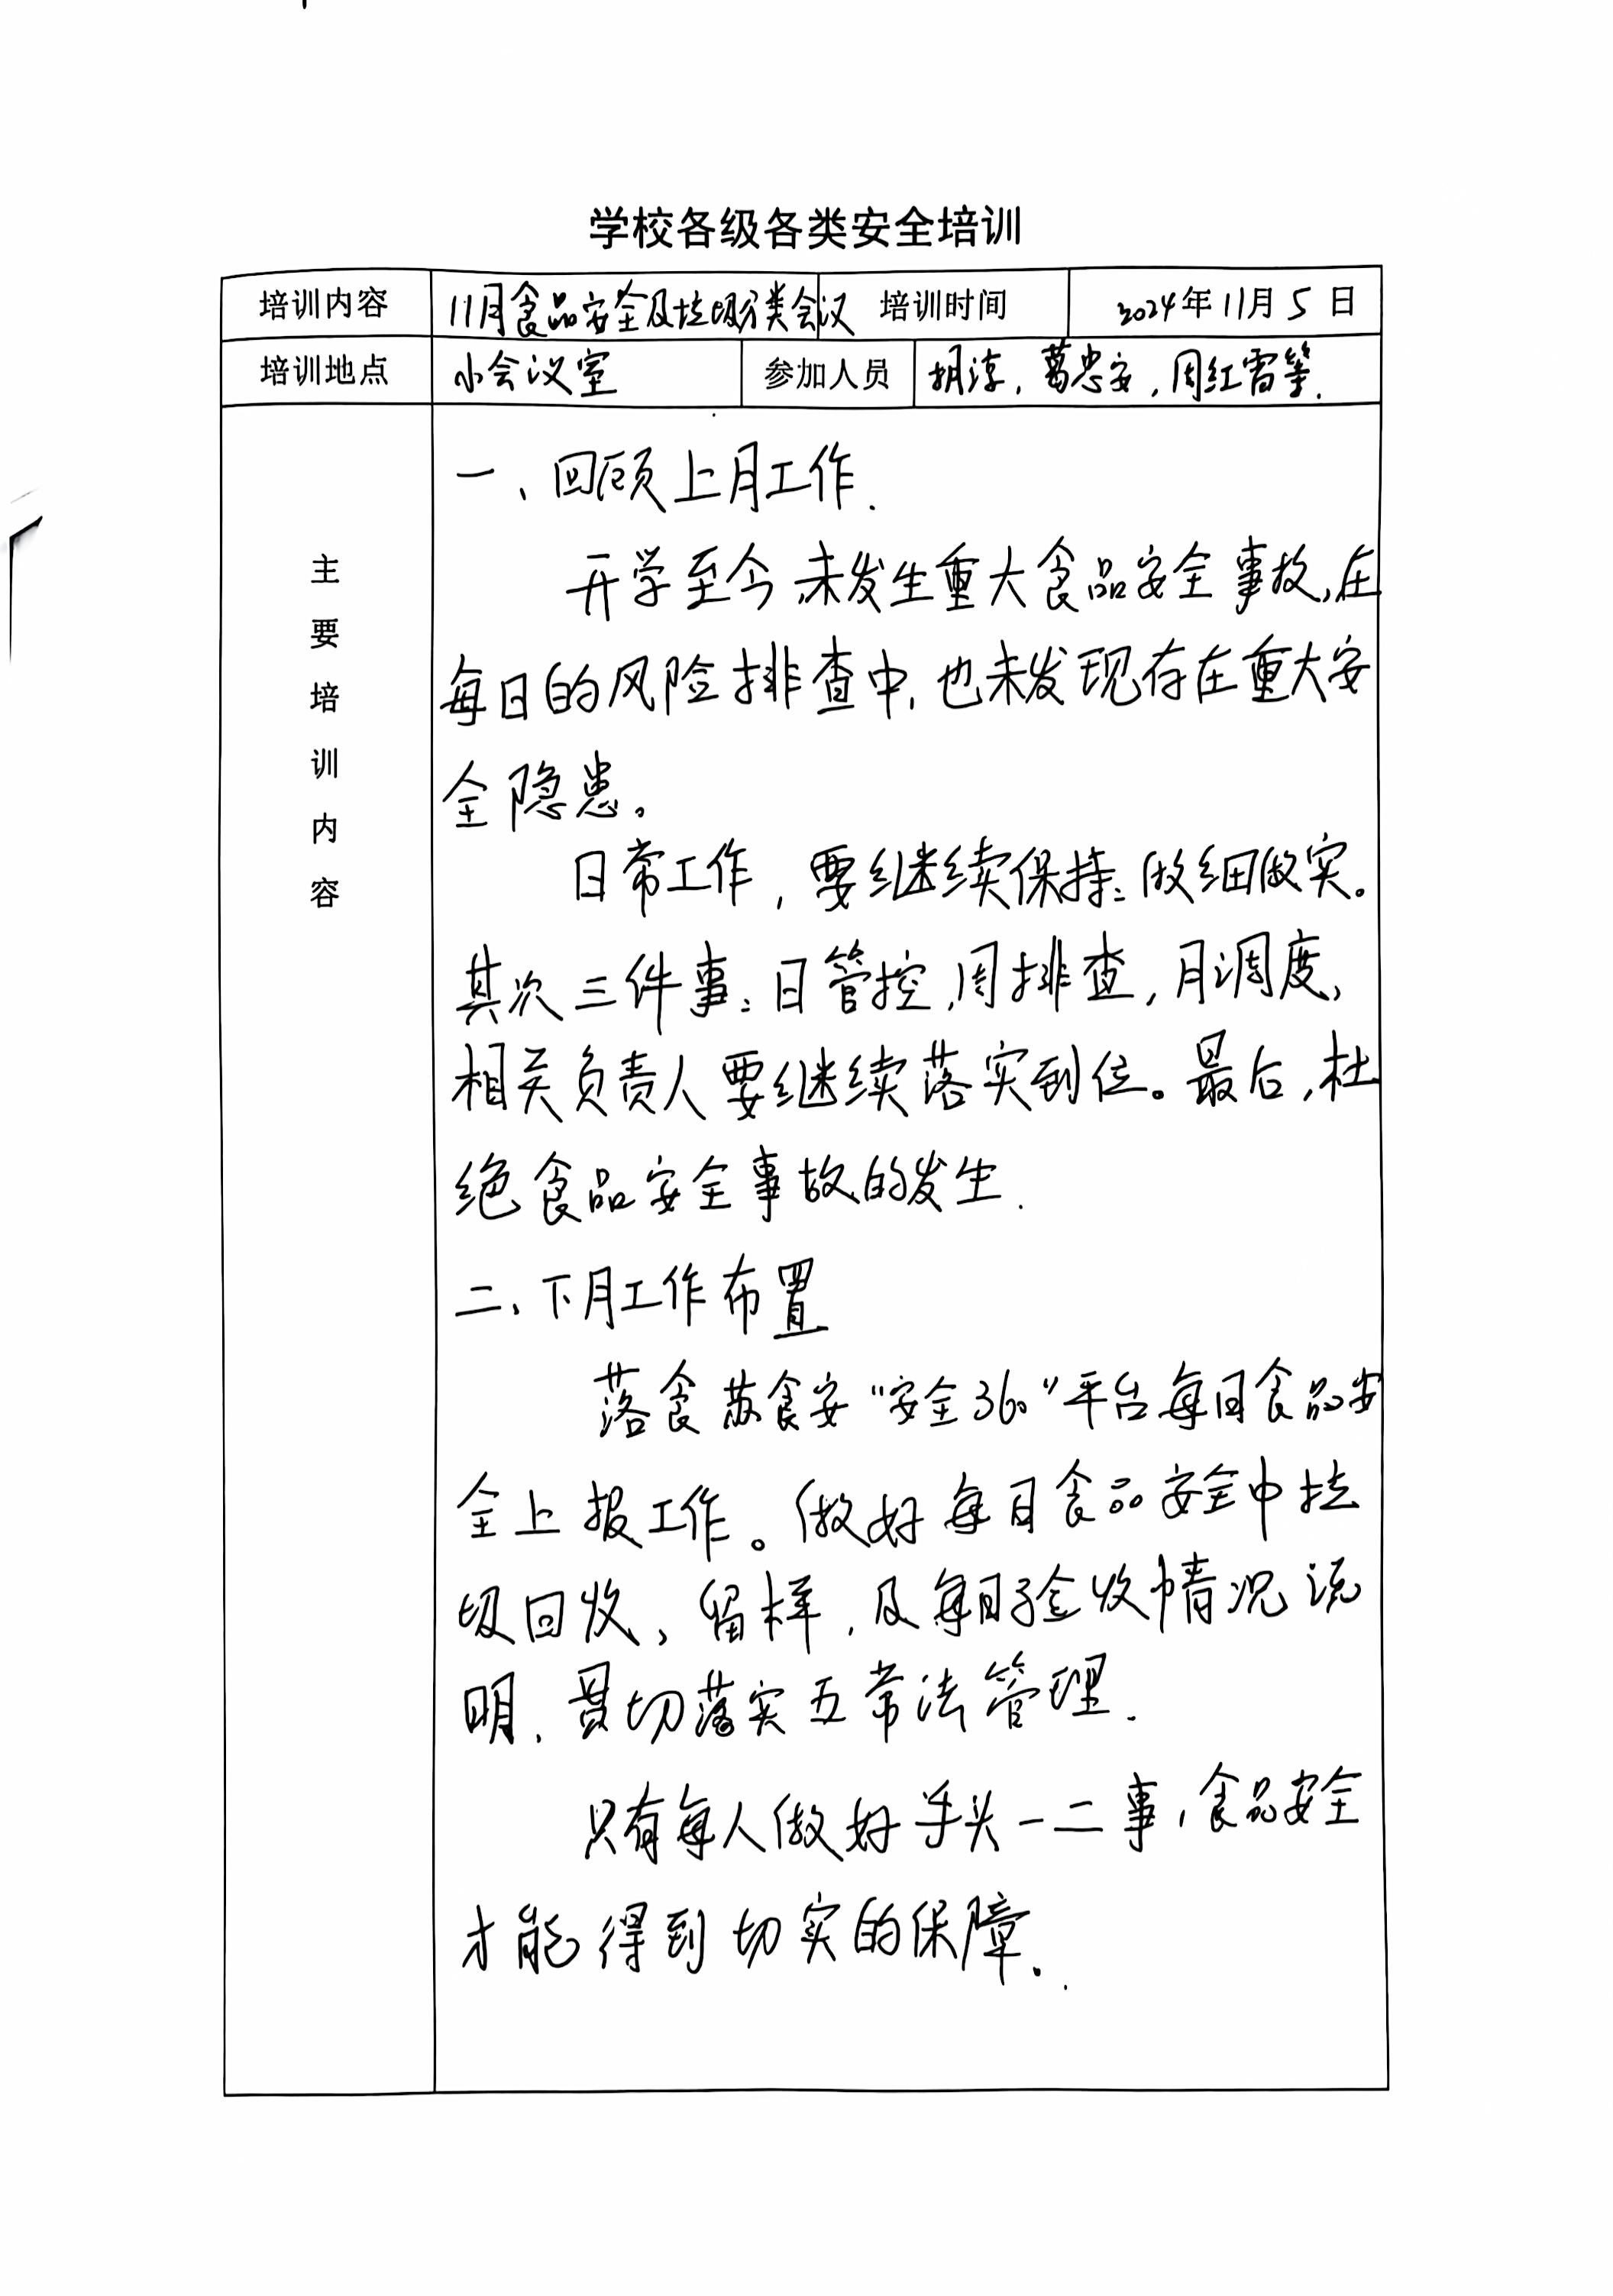 学校各级各类安全培训
培训内容 11月食品安全及垃圾分类会议 培训时间 2024年11月5日
培训地点 小会议室 参加人员 胡淳,葛忠安,周红雷等.
主要培训内容
一、回顾上月工作.
开学至今,未发生重大食品安全事故,在
每日的风险排查中,也未发现存在重大安
全隐患。
日常工作,要继续保持:做细做实。
其次三件事:日管控,周排查,月调度,
相关负责人要继续落实到位。最后,杜
绝食品安全事故的发生.
二、下月工作布置
落食苏食安“安全360”平台每日食品安
全上报工作。做好每日食品安全中垃
圾回收、留样,及每日验收情况说
明.贯切落实五常法管理.
只有每人做好手头一二事,食品安全
才能得到切实的保障.